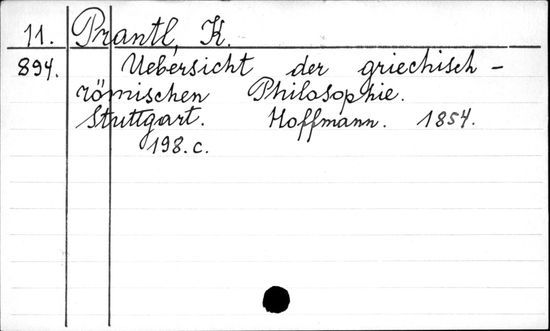 11. Prantl, K.
894. Uebersicht der griechisch-
römischen Philosophie.
Stuttgart. Hoffmann. 1854.
198. c.